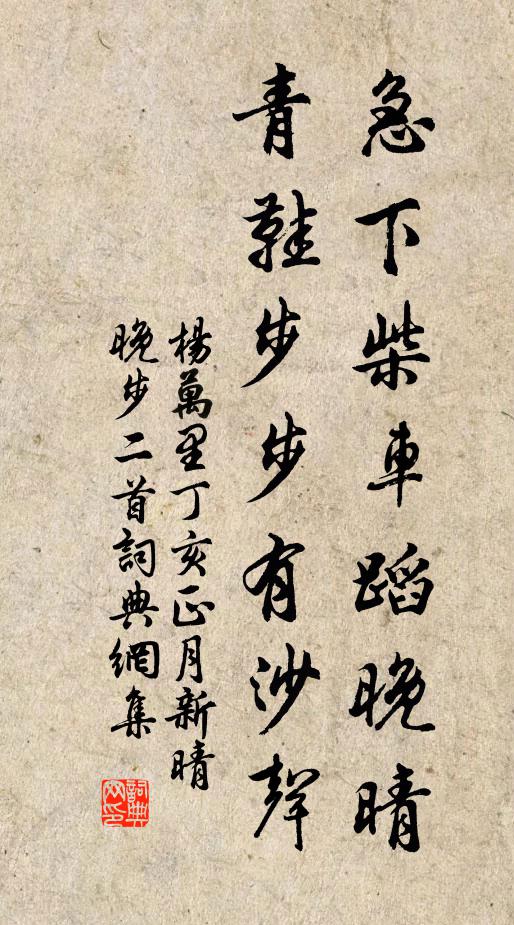 急下柴車蹈晚晴
青鞋步步有沙聲
楊萬里丁亥正月新晴
晚步二首詞典網集
詞典
网印